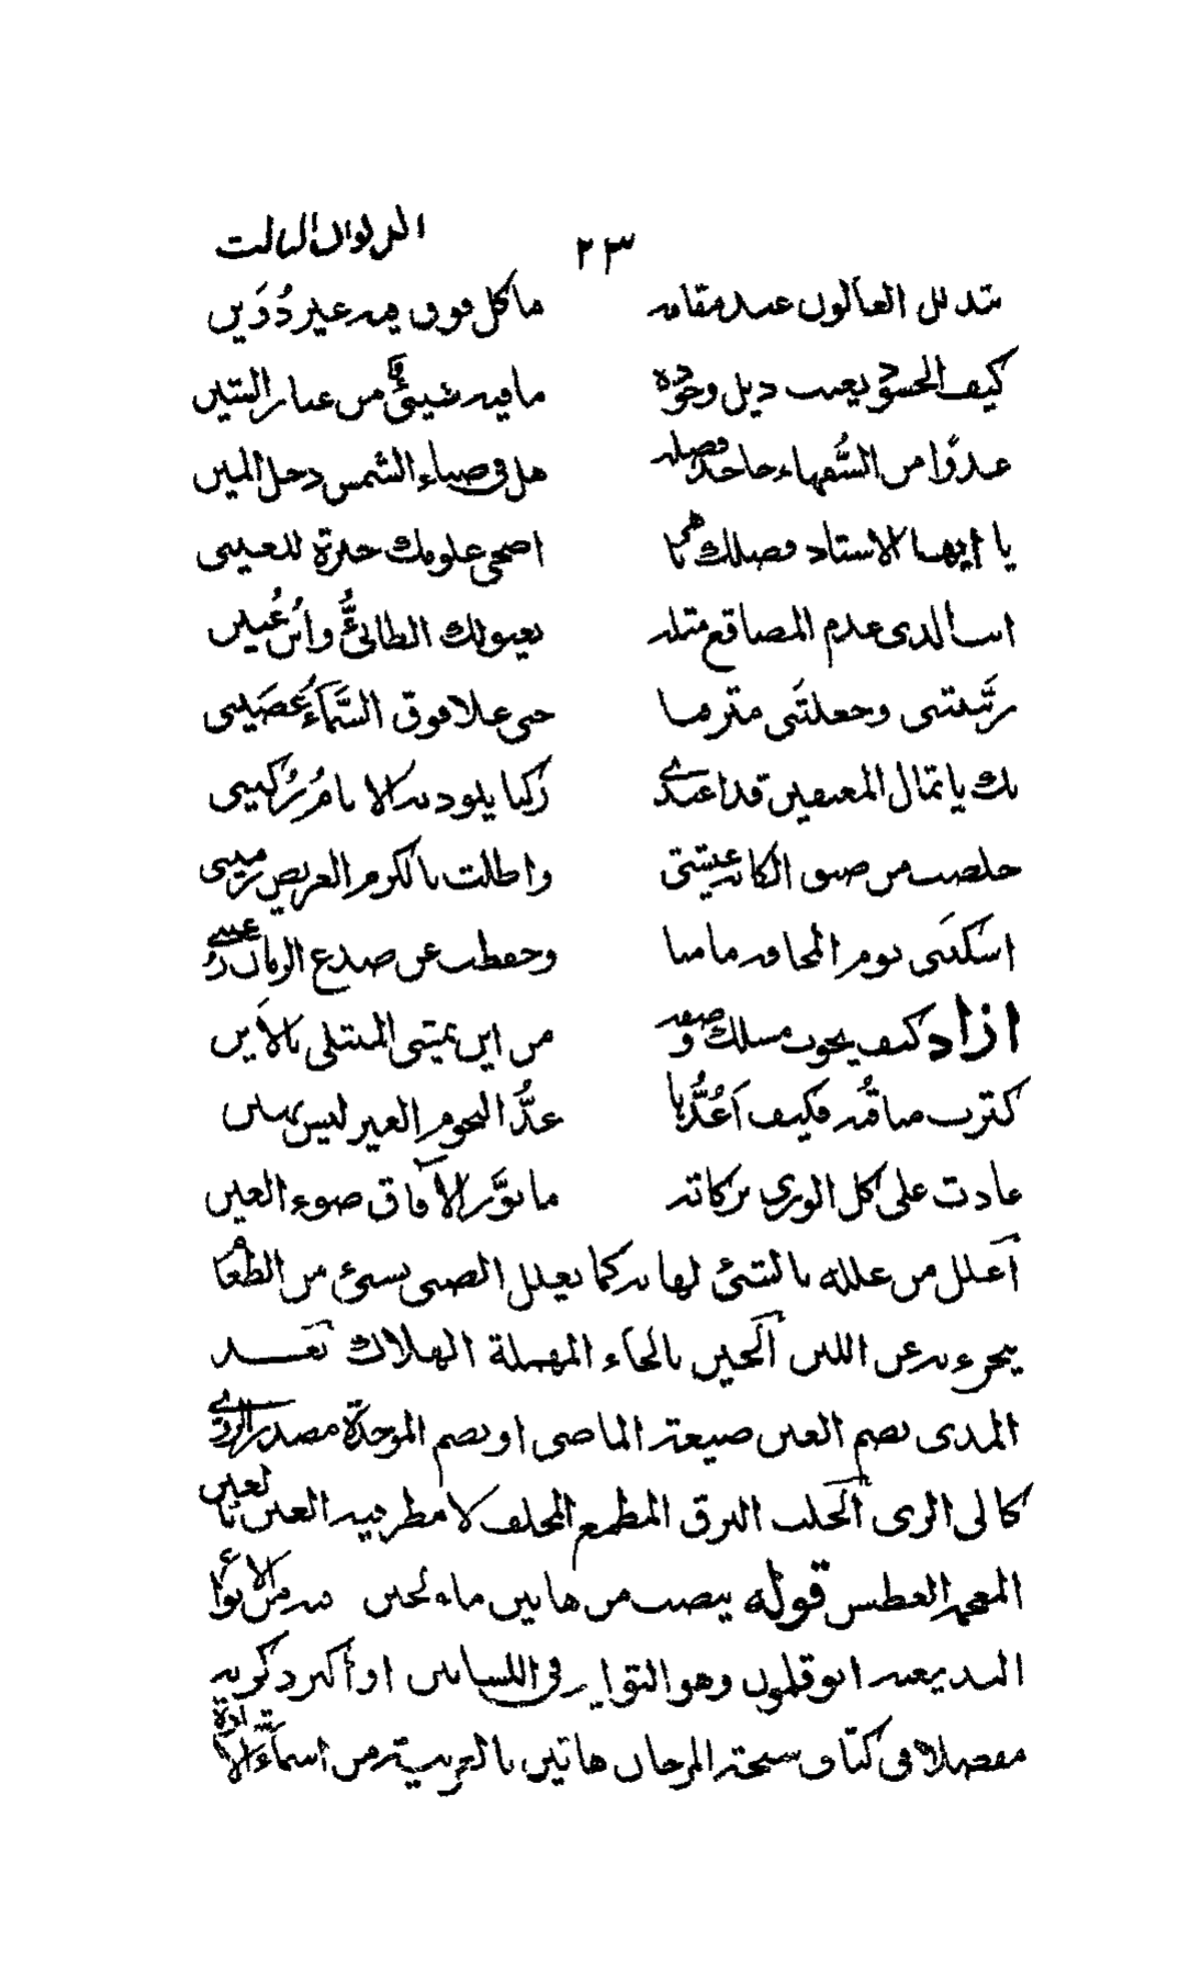 الديوان الثالث ٢٣
يتدلل العالون عند مقامه ما كل فوق فيه غير دُوَين
كيف الحسود يعيب ذيل وجوده ما فيه شيئ من غبار الشين
عدوّا من السُّفهاء جاحد فضله هل في ضياء الشمس دخل المين
يا ايها الاستاد فضلك ثم اضحى علومك حيرة للعين
انت الذي عدم المصاقع مثله يعنو لك الطائيُّ وابن عُبين
ربَّيتني وجعلتَني مترنما حتى علا فوق السَّماءِ غُصَيني
بك يا ثمال المعتفين قد اغتدى ركنا يلوذ به الانام رُكَيني
خلصت من ضيق المكان عيشتي واطلت بالكرم العريض
اسكنتَني يوم المخافة مامنا وحفظت عن صدع الزمان
ازاد كيف يجوب مسلك وصفه من اين يمشي المبتلى بالاَين
كثرت مناقبُه فكيف اَعُدُّها عدُّ النجوم الغير ليس بهين
عادت على كل الورى بركاته ما نوَّر الآفاق ضوء العين
آعلل من علله بالشئ لهاه به كما يعلل الصبي بشئ من الطعام
يجزء به عن اللبن آلحين بالحاء المهملة الهلاك تعد
المدى بضم العين صيغة الماضي او بضم الموحدة مصدر
كالى الرى آلخلب البرق المطمع المخلف لا مطر فيه العين بالعين
المعجمة العطش قوله ينصب من هاتين ماء لجين فيه من الانواع
البديعية ابو قلمون وهو التوارد في اللسانين او اكثر ذكرته
مفصلا في كتابي سبحة المرجان هاتين بالعربية من اسماء الاشارة